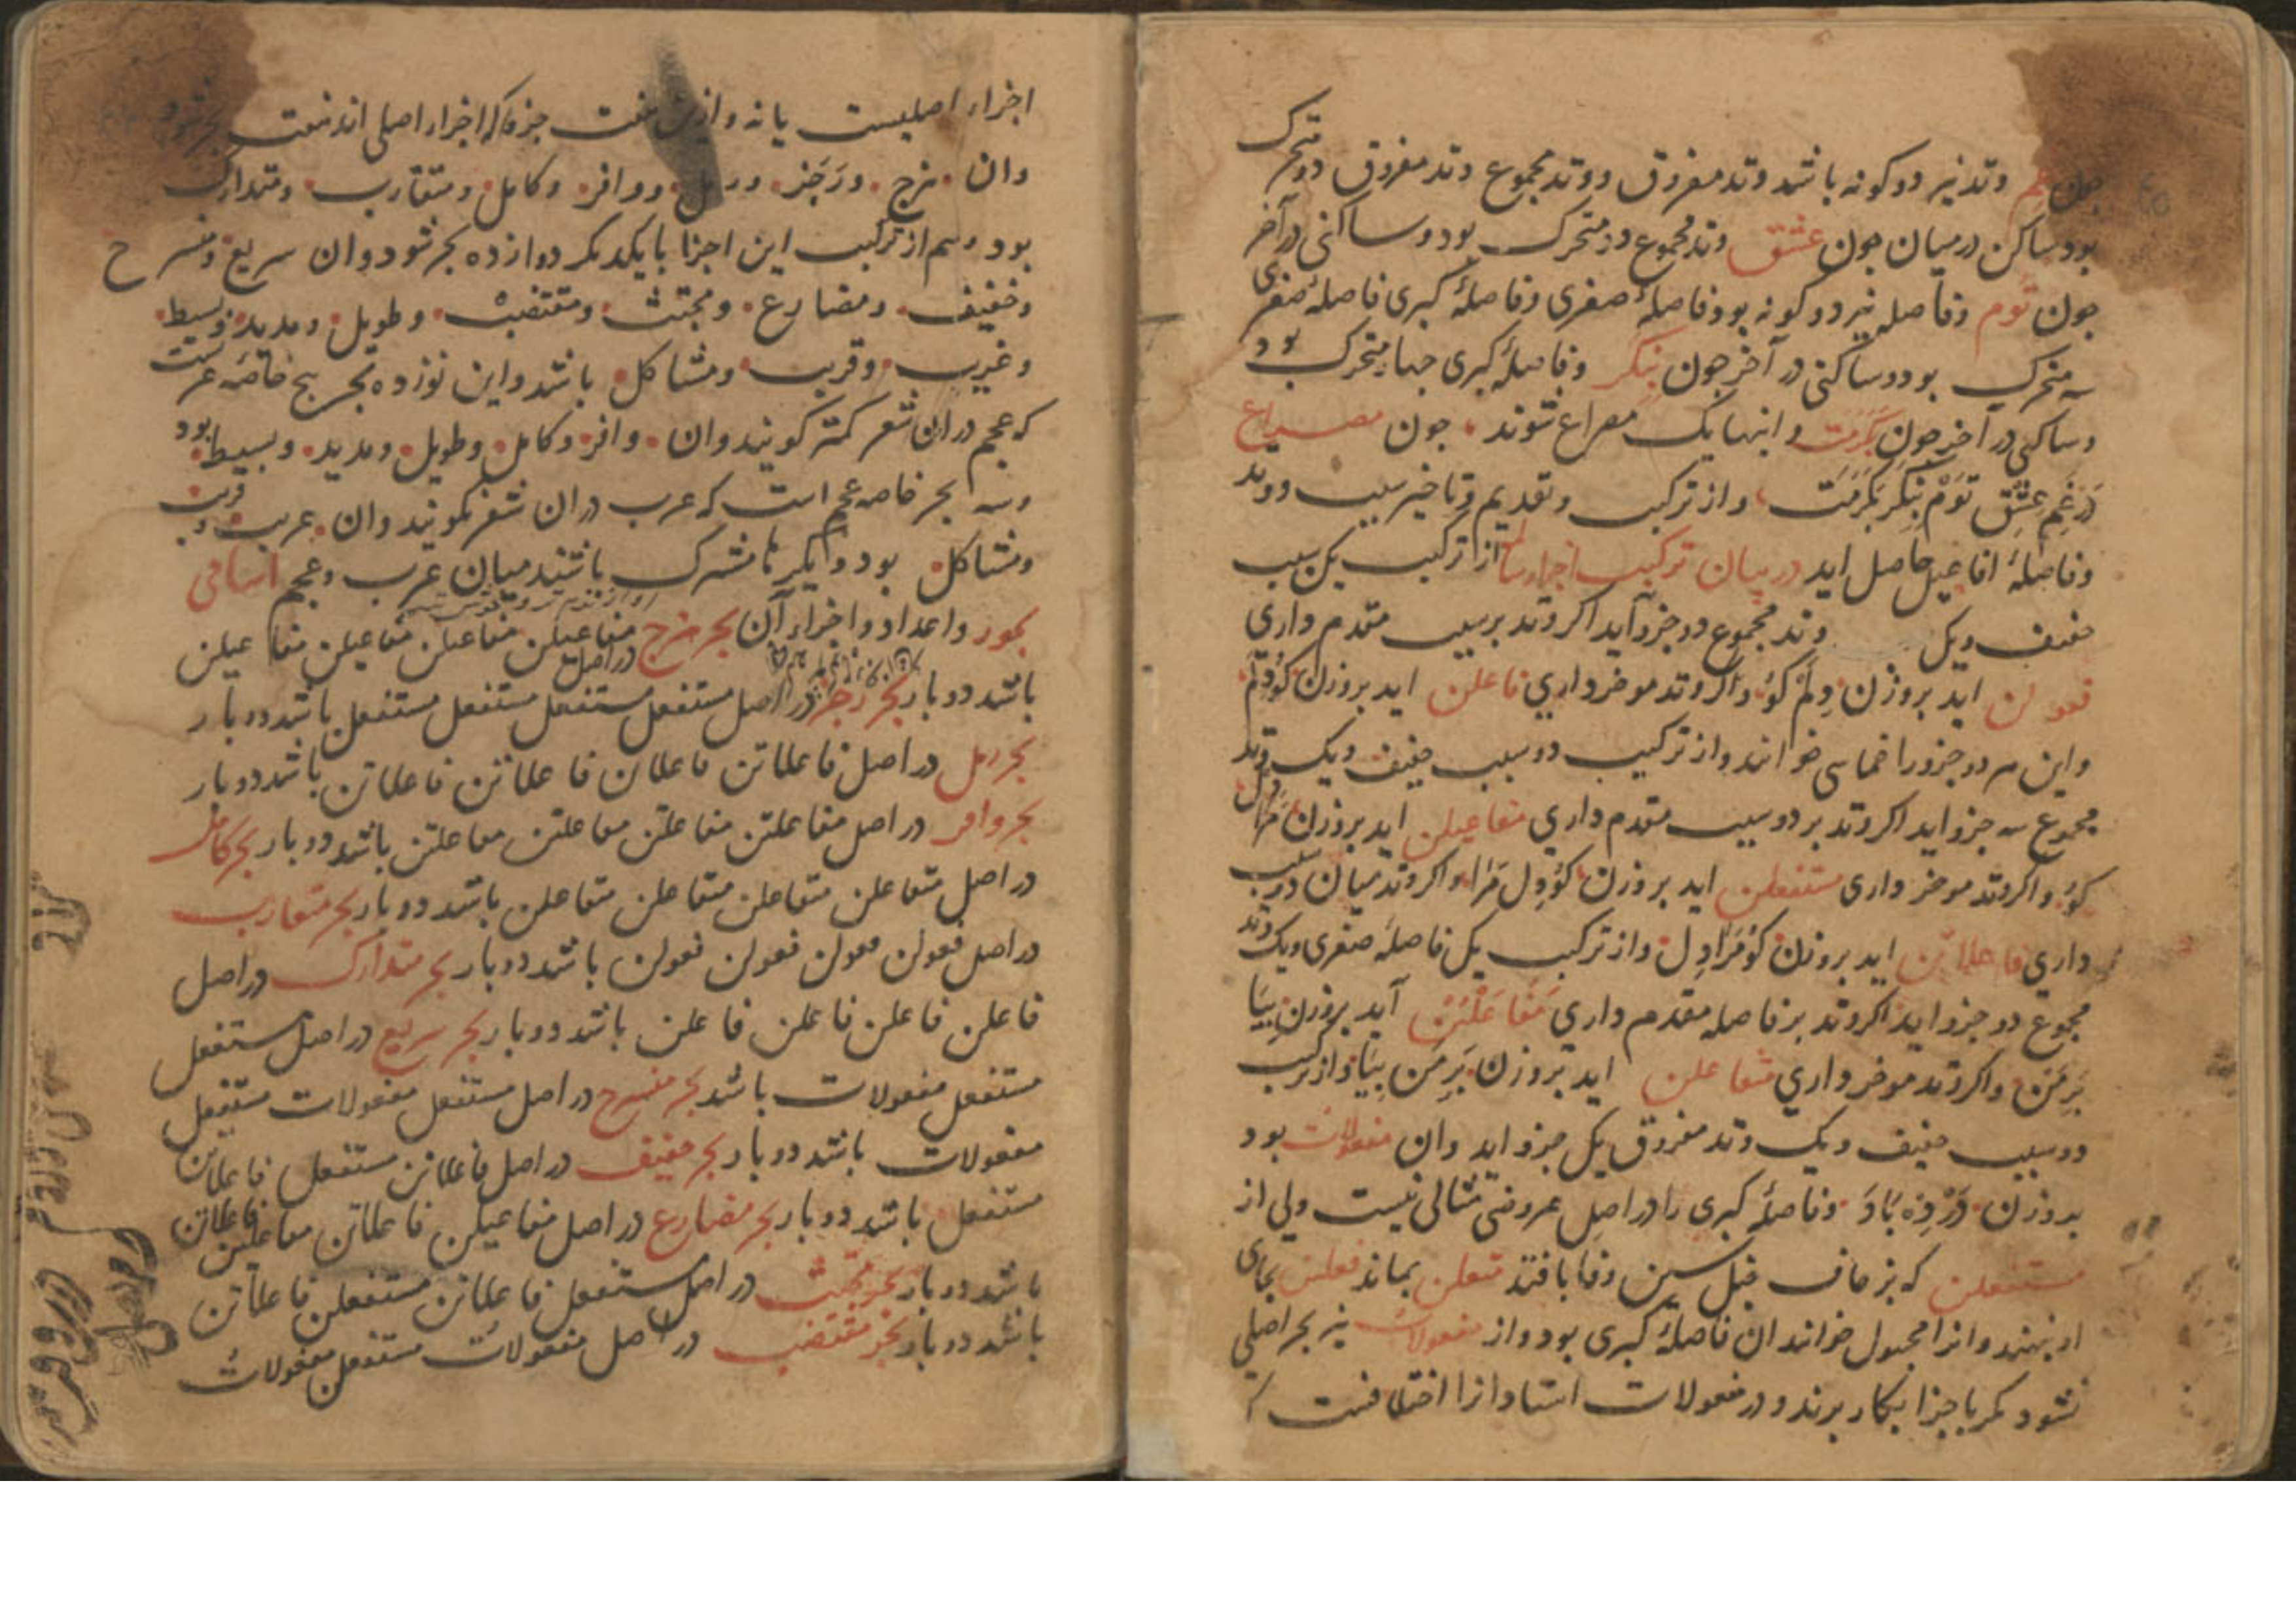 چون غم وتد نیز دو کونه باشد وتد مفروق و وتد مجموع وتد مفروق دو متحرک
بود ساکن در میان چون عشق وتد مجموع دو متحرک بود و ساکنی در آخر
چون توم و فاصله نیز دو کونه بود فاصلهٔ صغری و فاصلهٔ کبری فاصلهٔ صغری
سه متحرک بود و ساکنی در آخر چون بنکر و فاصلهٔ کبری چهار متحرک بود
و ساکنی در آخر چون بکرمت و اینها یک مصراع شوند چون مصراع
در غم عشق توم بنکر بکرمت و از ترکیب و تقدیم و تاخیر سبب و وتد
و فاصلهٔ افاعیل حاصل اید در بیان ترکیب اجزا از ترکیب یک سبب
خفیف و یک وتد مجموع دو جزو آید اکر وتد بر سبب متقدم داری
فعولن اید بروزن دلم کو و اکر وتد موخر داری فاعلن اید بروزن کو دلم
و این هر دو جزو را خماسی خوانند و از ترکیب دو سبب خفیف و یک وتد
مجموع سه جزو اید اکر وتد بر دو سبب متقدم داری مفاعیلن اید بروزن مرا دل
کو و اکر وتد موخر داری مستفعلن اید بروزن کو دل مرا و اکر وتد میان دو سبب
داری فاعلاتن اید بروزن کو مرا دل و از ترکیب یک فاصلهٔ صغری و یک وتد
مجموع دو جزو اید اکر وتد بر فاصله مقدم داری مفاعلتن آید بروزن بیا
بر من و اکر وتد موخر داری متفاعلن اید بروزن بر من بیا و از ترکیب
دو سبب خفیف و یک وتد مفروق یک جزو اید وان مفعولات بود
بروزن و فاصلهٔ کبری را در اصل عروضی مثالی نیست ولی از
مستفعلن که بزحاف خبل سین و فا بافتد متعلن بماند فعلتن بجای
او بنهند و انرا مخبول خوانند ان فاصلهٔ کبری بود و از مفعولات نیز بحر اصلی
نشود مکر با جزا بکار برند و در مفعولات استادانرا اختلافست که
اجزاء اصلیست یا نه و ازین هفت جزو که اجزاء اصلی اند هفت بحر شود
وان هزج و رجز و رمل و وافر و کامل و متقارب و متدارک
بود و هم از ترکیب این اجزا با یکدیکر دوازده بحر شود وان سریع و منسرح
و خفیف و مضارع و مجتث و مقتضب و طویل و مدید و بسیط
و غریب و قریب و مشاکل باشد و این نوزده بحر پنج خاصهٔ عربست
که عجم دران شعر کمتر کویند وان وافر و کامل و طویل و مدید و بسیط بود
و سه بحر خاصه عجم است که عرب دران شعر نکویند وان غریب و قریب
و مشاکل بود و دیکرها مشترک باشند میان عرب و عجم اسامی
بحور و اعداد و اجزاء آن بحر هزج در اصل مفاعیلن مفاعیلن مفاعیلن مفاعیلن
باشد دو بار بحر رجز در اصل مستفعل مستفعل مستفعل مستفعل باشد دو بار
بحر رمل در اصل فاعلاتن فاعلاتن فاعلاتن فاعلاتن باشد دو بار
بحر وافر در اصل مفاعلتن مفاعلتن مفاعلتن مفاعلتن باشد دو بار بحر کامل
در اصل متفاعلن متفاعلن متفاعلن متفاعلن باشد دو بار بحر متقارب
در اصل فعولن فعولن فعولن فعولن باشد دو بار بحر متدارک در اصل
فاعلن فاعلن فاعلن فاعلن باشد دو بار بحر سریع در اصل مستفعل
مستفعل مفعولات باشد بحر منسرح در اصل مستفعل مفعولات مستفعل
مفعولات باشد دو بار بحر خفیف در اصل فاعلاتن مستفعل فاعلاتن
مستفعل باشد دو بار بحر مضارع در اصل مفاعیلن فاعلاتن مفاعیلن فاعلاتن
باشد دو بار بحر مجتث در اصل مستفعل فاعلاتن مستفعلن فاعلاتن
باشد دو بار بحر مقتضب در اصل مفعولات مستفعلن مفعولات